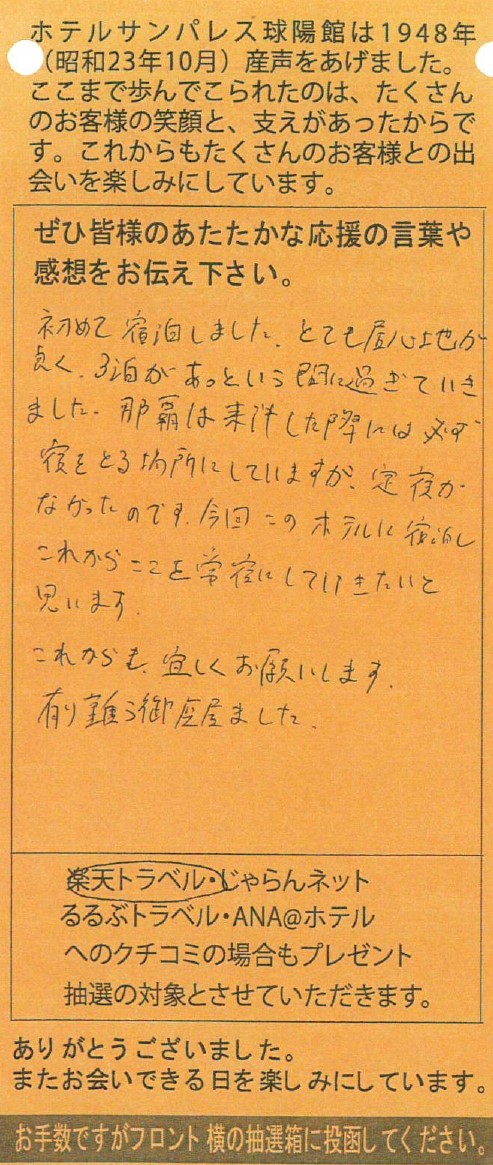 ホテルサンパレス球陽館は1948年
（昭和23年10月）産声をあげました。
ここまで歩んでこられたのは、たくさん
のお客様の笑顔と、支えがあったからで
す。これからもたくさんのお客様との出
会いを楽しみにしています。
ぜひ皆様のあたたかな応援の言葉や
感想をお伝え下さい。
初めて宿泊しました。とても居心地が
良く、3泊があっという間に過ぎていき
ました。那覇は来沖した際には必ず
宿をとる場所にしていますが、定宿が
なかったのです。今回このホテルに宿泊し
これからここを常宿にしていきたいと
思います。
これからも、宜しくお願いします。
有り難う御座居ました。
楽天トラベル・じゃらんネット
るるぶトラベル・ANA@ホテル
へのクチコミの場合もプレゼント
抽選の対象とさせていただきます。
ありがとうございました。
またお会いできる日を楽しみにしています。
お手数ですがフロント横の抽選箱に投函してください。